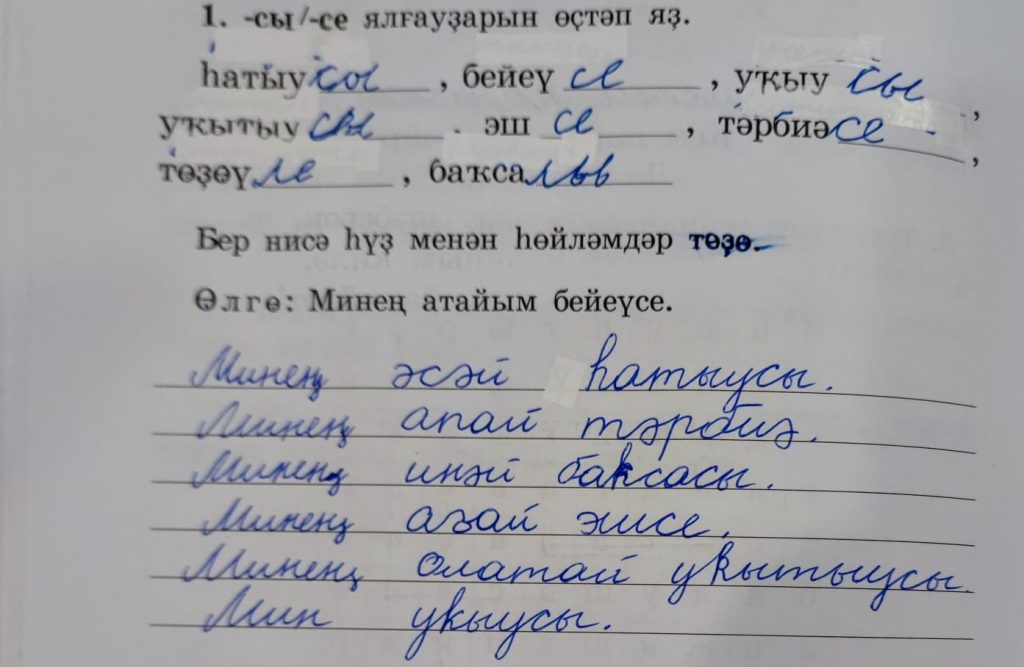 1. -сы/-се ялғауҙарын өҫтәп яҙ.
һатыу сы , бейеү се , уҡыу сы ,
уҡытыу сы . эш се , тәрбиә се ,
төҙөү ле , баҡса лы
Бер нисә һүҙ менән һөйләмдәр төҙө.
Өлгө: Минең атайым бейеүсе.
Минең әсәй һатыусы.
Минең апай тәрбиә.
Минең инәй баксасы.
Минең ағай эшсе.
Минең олатай укытыусы.
Мин укыусы.